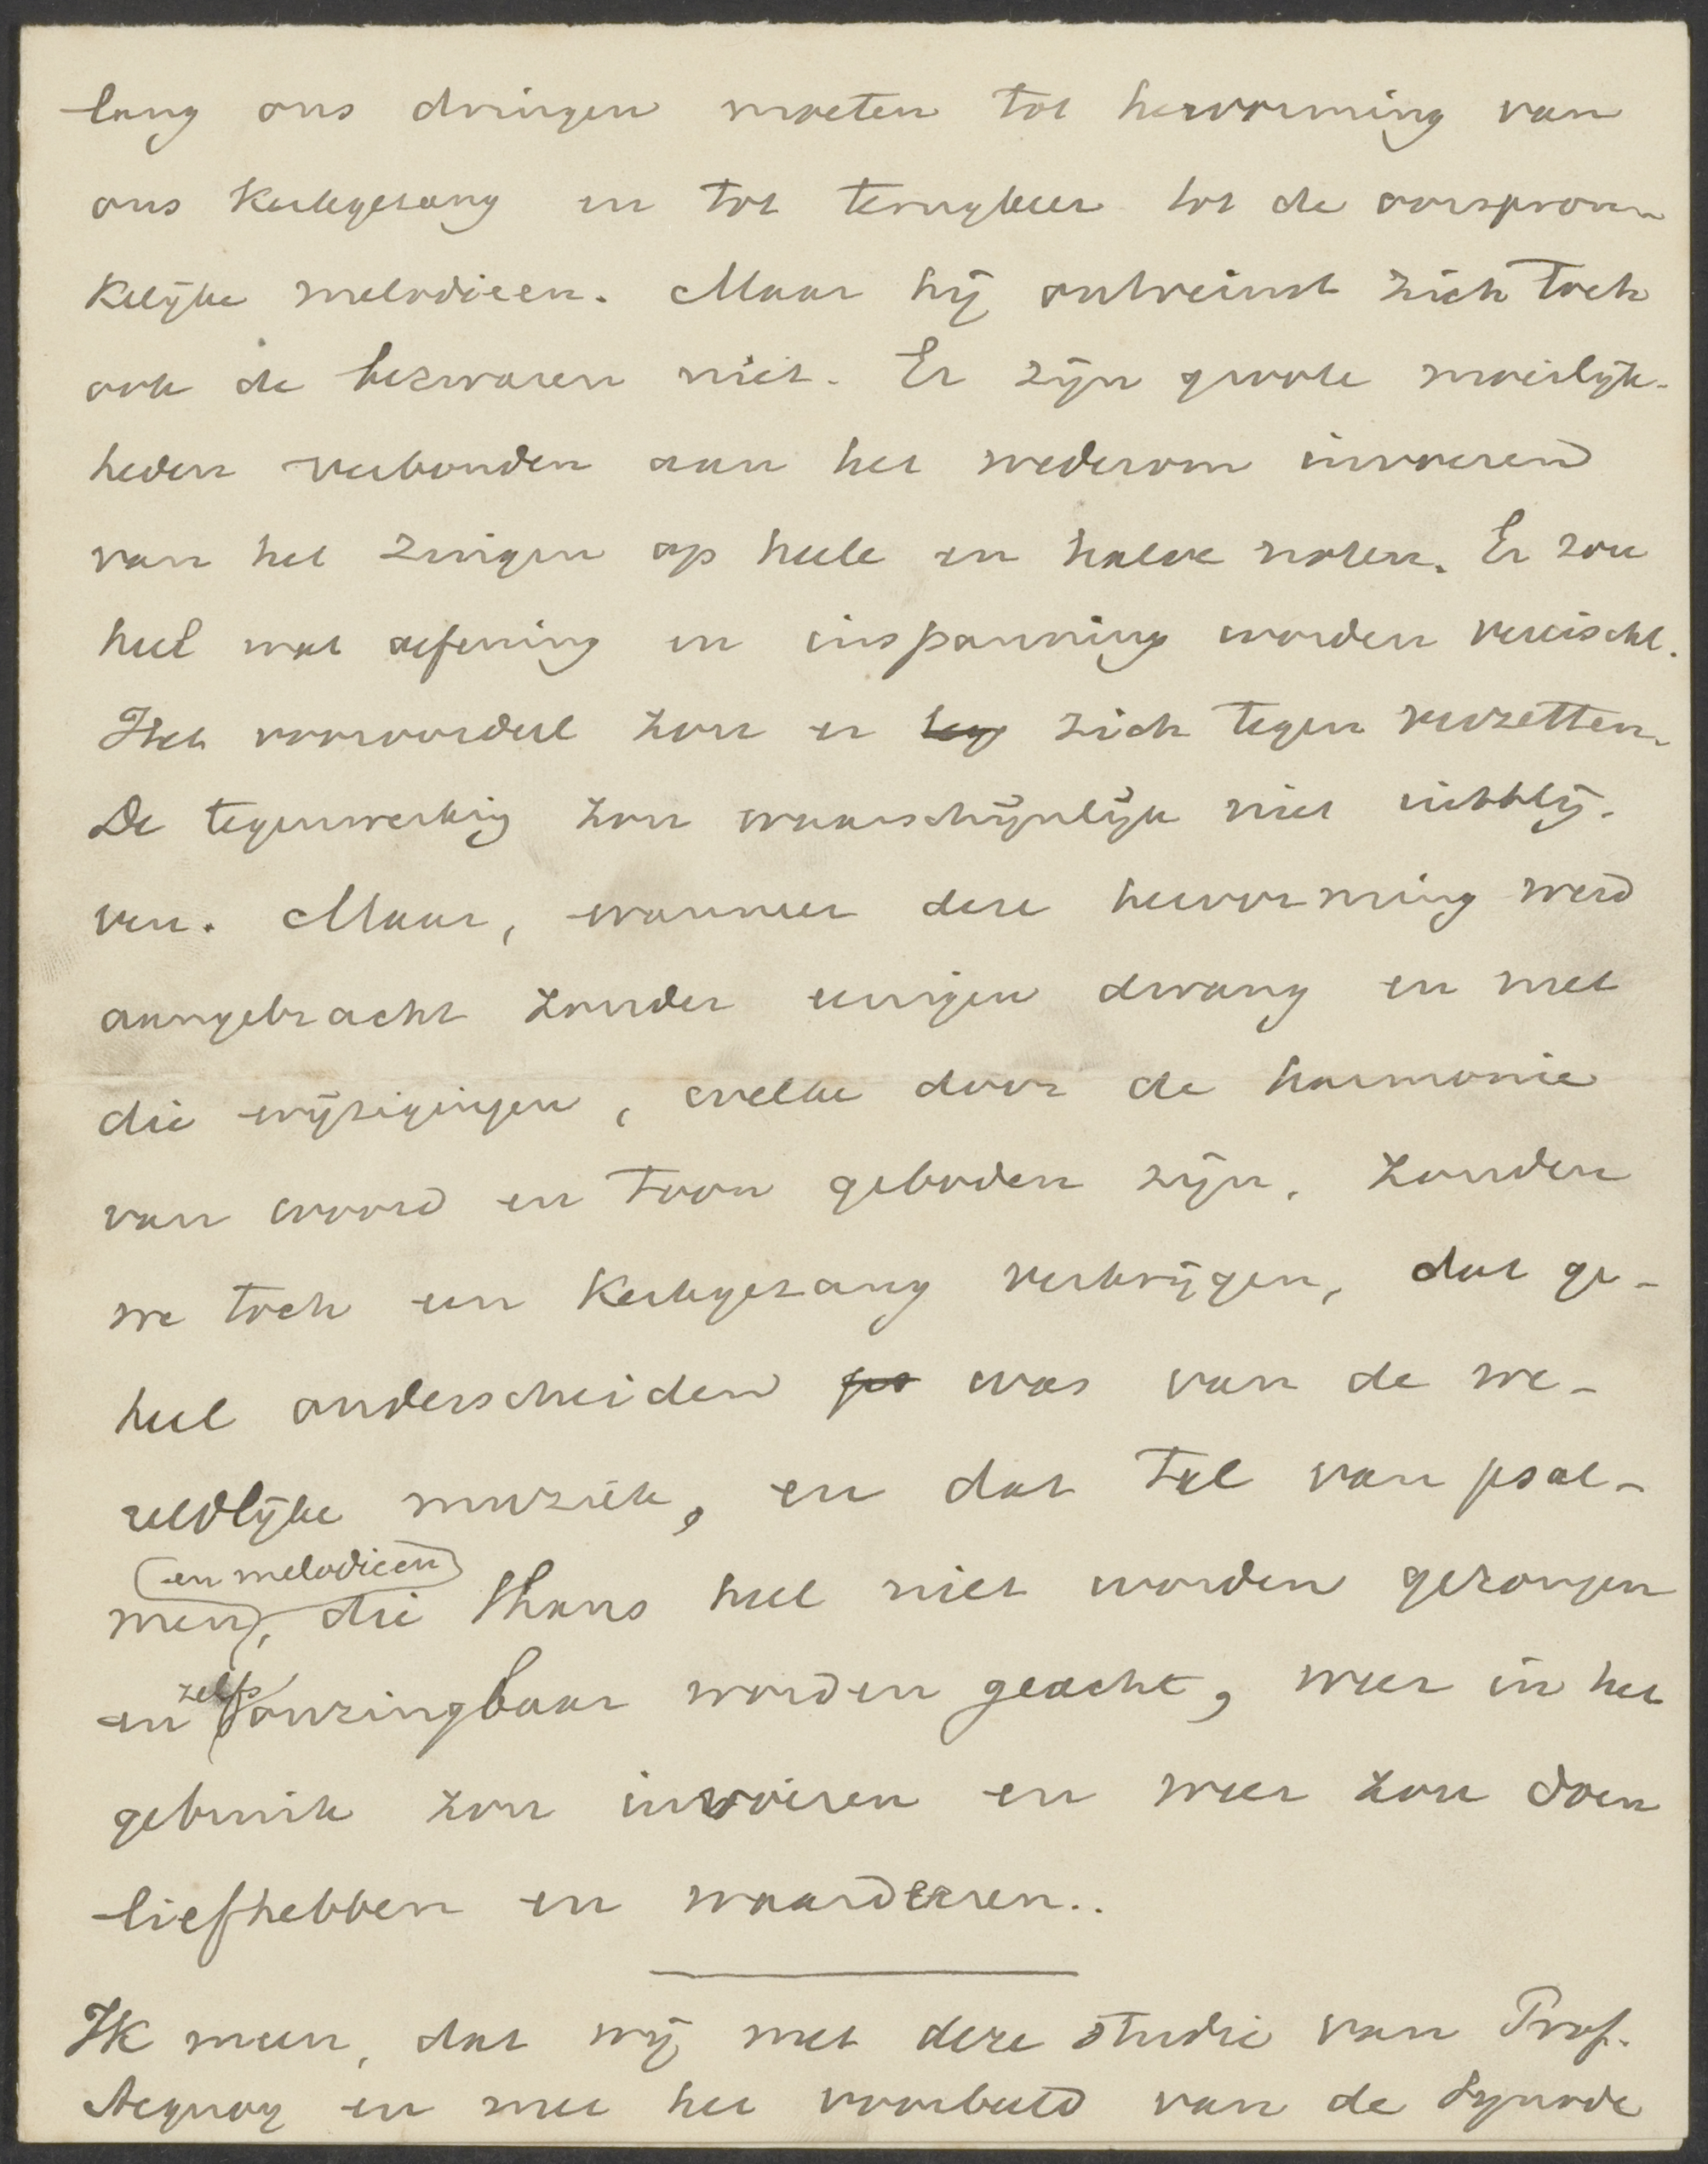 lang ons dringen moeten tot hervorming van
ons kerkgezang en tot terugkeer tot de oorspron-
kelijke melodieen. Maar hij ontveinst zich toch
ook de bezwaren niet. Er zijn groote moeilijk-
heden verbonden aan het wederom invoeren
van het zingen op heele en halve noten. Er zou
heel wat oefening en inspanning worden vereischt.
Het vooroordeel zou er zich tegen verzetten.
De tegenwerking zou waarschijnlijk niet uitblij-
ven. Maar, wanneer deze hervorming werd
aangebracht zonder eenigen dwang en met
die wijzigingen, welke door de harmonie
van woord en toon geboden zijn, zouden
we toch een kerkgezang verkrijgen, dat ge-
heel onderscheiden was van de we-
reldlijke muziek, en dat tal van psal-
en melodieen
men, die thans heel niet worden gezongen
en zelfs onzingbaar worden geacht, weer in het
gebruik zou invoeren en weer zou doen
liefhebben en waardeeren..
Ik meen, dat wij met deze studie van Prof.
Acquoy en met het voorbeeld van de Synode